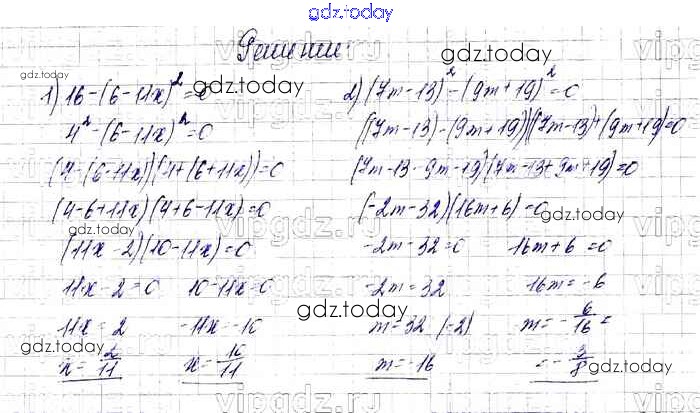 gdz.today
Решение:
gdz.today
gdz.today
1) 16-(6-11x)²=0
4²-(6-11x)²=0
(4-(6-11x))(4+(6+11x))=0
(4-6+11x)(4+6-11x)=0
gdz.today
(11x-2)(10-11x)=0
11x-2=0 10-11x=0
11x=2 -11x=-10
gdz.today
x=2/11 x=10/11
2) (7m-13)²-(9m+19)²=0
((7m-13)-(9m+19))((7m-13)+(9m+19))=0
gdz.today
(7m-13-9m-19)(7m-13+9m+19)=0
(-2m-32)(16m+6)=0
gdz.today
-2m-32=0 16m+6=0
-2m=32 16m=-6
gdz.today
m=32:(-2) m=-6/16=
gdz.today
m=-16 =-3/8
vipgdz.ru